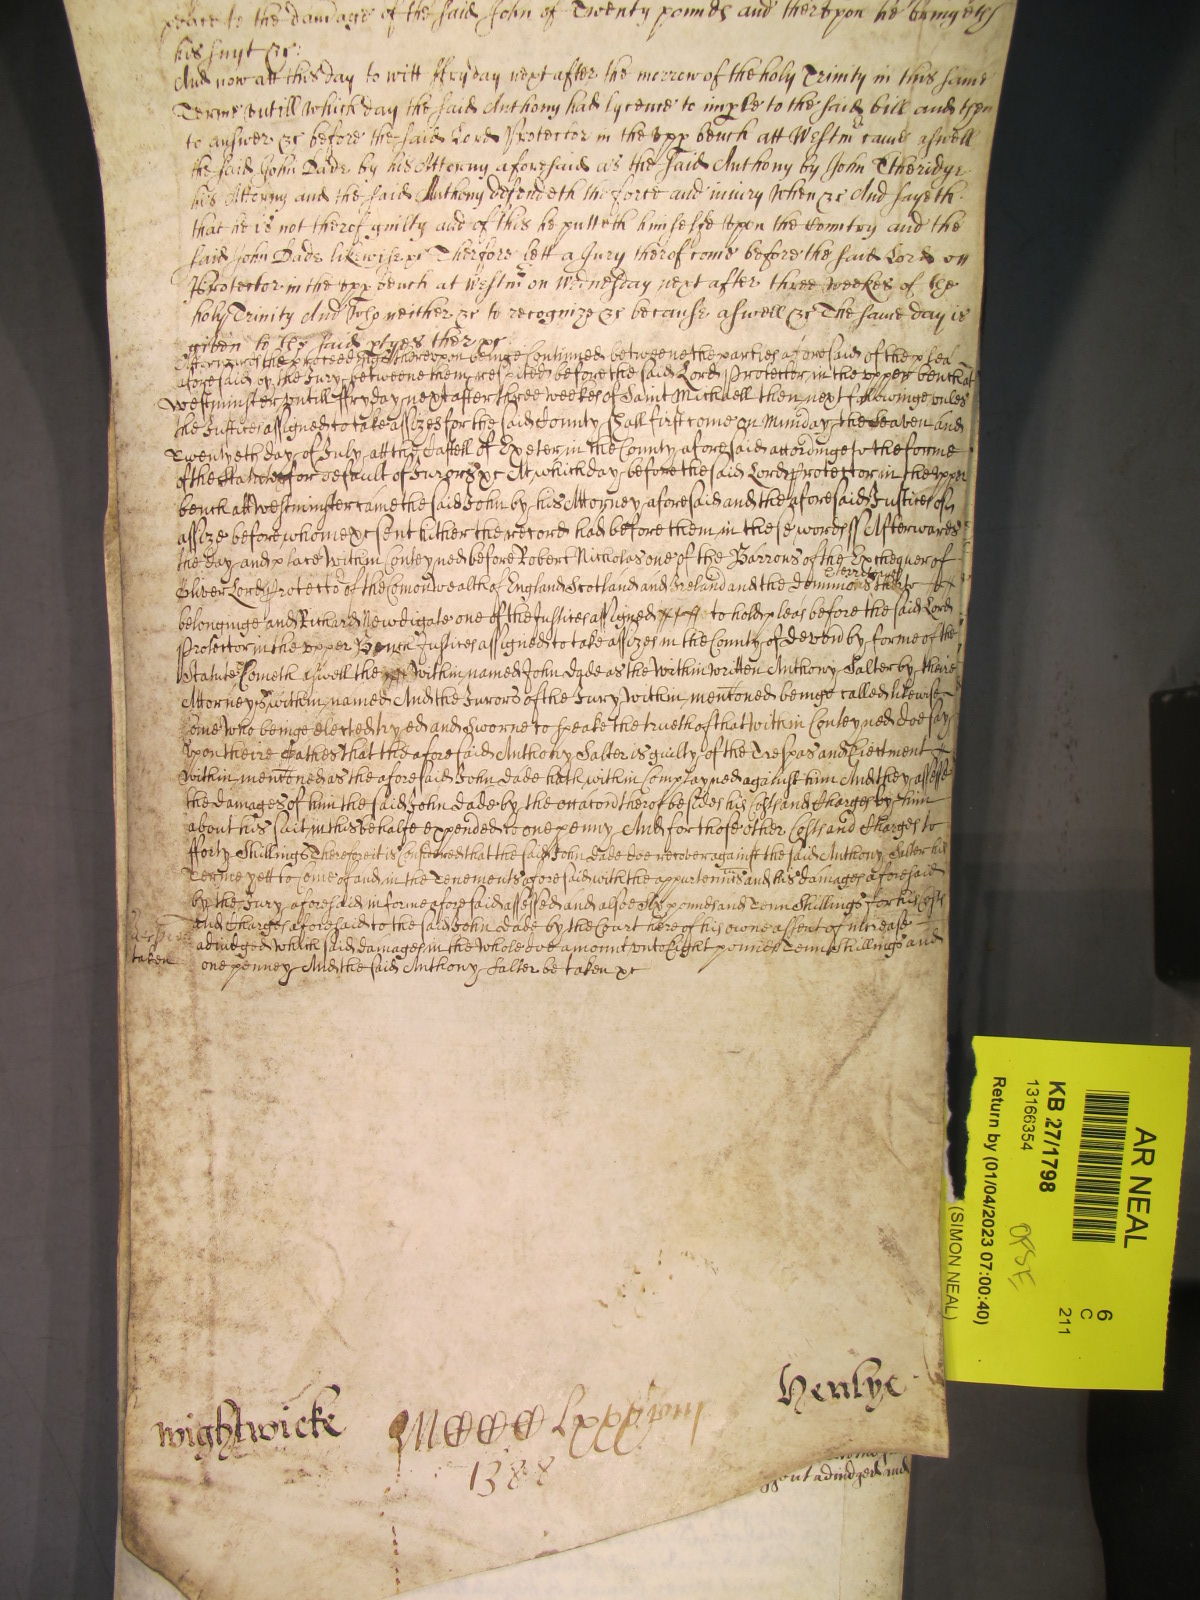 peace to the damage of the said John of Twenty pounds and therupon he bringeth
his suyt &c:
And now att this day to witt ffryday next after the morrow of the holy Trinity in this same
Terme untill which day the said Anthony had lycence to imple to the said bill and then
to answer &c before the said Lord Protector in the upp bench att Westm came aswell
the said John Dade by his Attorny aforesaid as the said Anthony by John Etheridge
his Attorny and the said Anthony defendeth the force and iniury when &c And sayeth
that he is not therof guilty and of this he putteth himselfe upon the Country and the
said John Dade likewise &c Therfore lett a Jury therof come before the said Lord
Protector in the upp bench at Westm on Wednesday next after three weekes of the
holy Trinity And who neither &c to recognize &c because aswell &c The same day is
given to the said ptyes ther &c
Afterwards the proceedings thereupon beinge Continued betweene the parties aforesaid of the plea
aforesaid by the Jury betweene them respited before the said Lord Protector in the upper bench at
Westminster untill ffryday next after three weekes of Saint Michaell then next followinge unles
the Justices assigned to take assizes for the said County shall first come on Munday the seaven and
Twentyeth day of July att the Castell of Exeter in the County aforesaid accordinge to the forme
of the Statute for default of Jurors &c At which day before the said Lord Protector in the upper
bench att Westminster came the said John by his Attorney aforesaid and the aforesaid Justices of
assize before whome &c sent hither the record had before them in these words ss Afterwards
the day and place within Conteyned before Robert Nicholas one of the Barrons of the Exchequer of
Oliver Lord Protector of the Comonwealth of England Scotland and Ireland and the Dominions thereto
Territoryes
belonginge and Richard Newdigate one of the Justices assigned to hold pleas before the said Lord
Protector in the upper Bench Justices assigned to take assizes in the County of Devon by forme of the
Statute Cometh aswell the within named John Dade as the within written Anthony Salter by their
Attorneys within named And the Jurors of the Jury within mentoned beinge called likewise
come who beinge elected tryed and sworne to speake the trueth of that within Conteyned doe say
upon theire Oathes that the aforesaid Anthony Salter is guilty of the Trespas and Eiectment
within mentoned as the aforesaid John Dade hath within Complayned against him And they assesse
the damages of him the said John Dade by the occacon therof besides his Costs and Charges by him
about his suit in this behalfe expended to one penny And for those other Costs and Charges to
fforty Shillings Therefore it is Considered that the said John Dade doe recover against the said Anthony Salter his
Terme yett to Come of and in the Tenements aforesaid with the appurtennts and his damages aforesaid
by the Jury aforesaid in forme aforesaid assessed and alsoe Six pounds and Tenn Shillings for his Costs
and Charges aforesaid to the said John Dade by the Court here of his owne assent of increase
adiudged which said damages in the whole doe amount unto Eight pounds Tenn shillings and
one penney And the said Anthony Salter be taken &c
taken
Wightwicke
Henlye
1388
out adiudged and
AR NEAL
6
C
211
KB 27/1798
13166354
Return by (01/04/2023 07:00:40)
(SIMON NEAL)